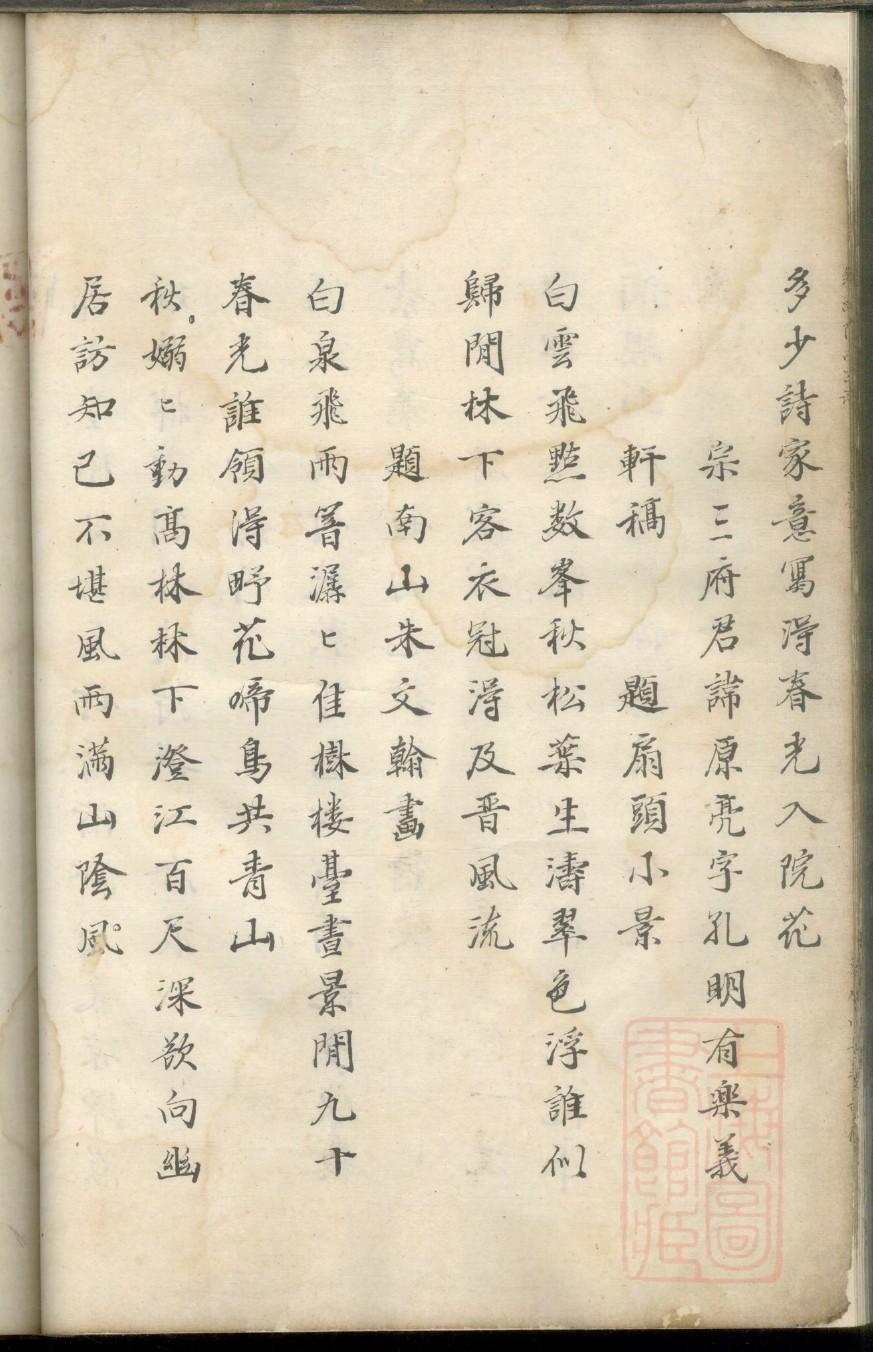 多少詩家意寫得春光入院花
宗三府君諱原亮字孔明有樂義
軒稿　題扇頭小景
白雲飛點数峯秋松葉生濤翠色浮誰似
歸閒林下客衣冠得及晋風流
題南山朱文翰畫
白泉飛雨筭潺〻佳樹楼臺晝景閒九十
春光誰領得野花啼鳥共青山
秋嫋〻動髙林林下澄江百尺深欲向幽
居訪知己不堪風雨滿山陰風
上海圖
書館藏